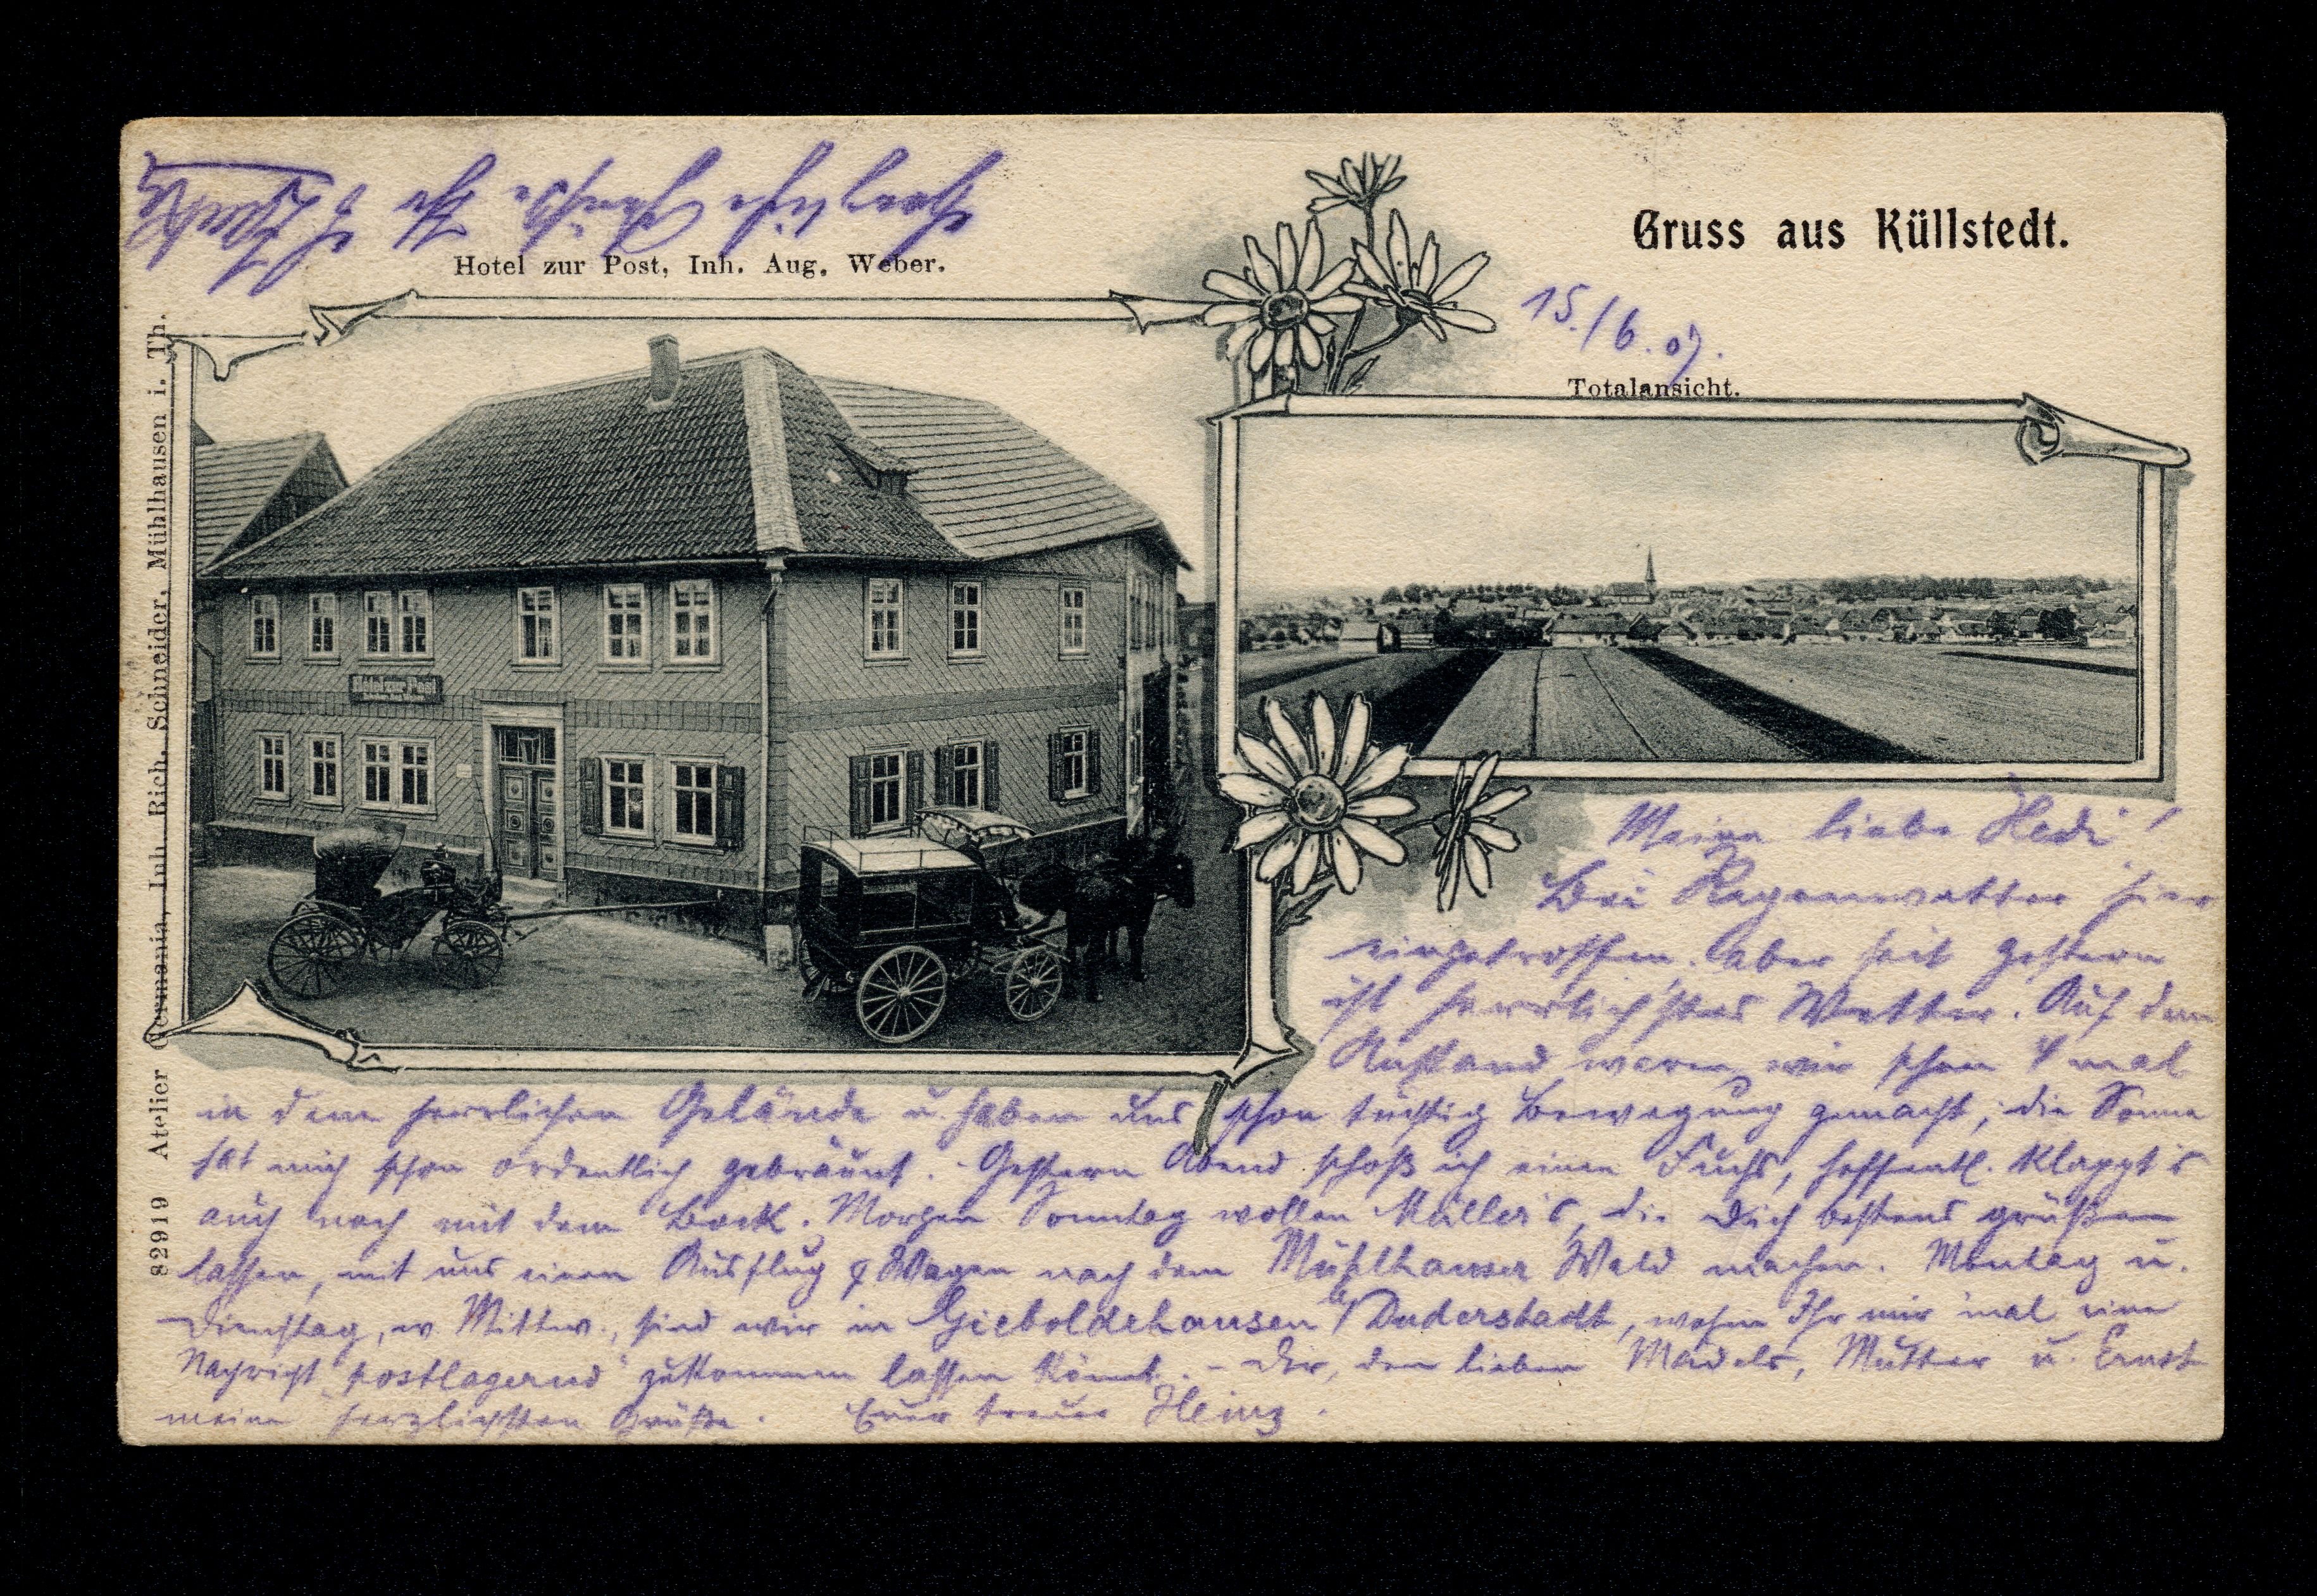 Herzliche Grüße Ihr
Hotel zur Post, Inh. Aug. Weber.
Gruss aus Küllstedt.
15./6.07.
Totalansicht.
Hotel zur Post
82919 Atelier Germania, Inh. Rich. Schneider, Mühlhausen i. Th.
Meine liebe Hedi!
Bei Regenwetter hier
eingetroffen. Aber seit gestern
ist herrlichstes Wetter. Auf dem
Anstand waren wir schon 4 mal
in dem herrlichen Gelände u. haben uns schon tüchtig Bewegung gemacht, die Sonne
hat mich schon ordentlich gebräunt. - Gestern Abend schoß ich einen Fuchs, hoffentl. klappt's
auch noch mit dem Bock. Morgen Sonntag wollen Müller's, die Dich bestens grüßen
lassen, mit uns einen Ausflug p Wagen nach dem Mühlhauser Wald machen. Montag u.
Dienstag, u Mittw., sind wir in Gieboldehausen / Duderstadt, wohin Ihr mir mal eine
Nachricht "postlagernd" zukommen lassen könnt. - Dir, den lieben Mädels, Mutter u. Ernst
meine herzlichsten Grüße. Euer treuer Heinz.